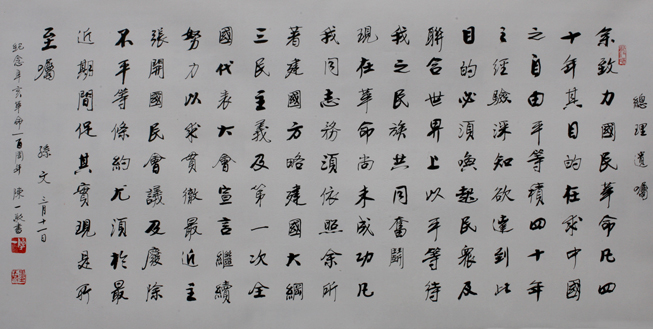 總理遺囑
余致力國民革命凡四
十年其目的在求中國
之自由平等積四十年
之經驗深知欲達到此
目的必須喚起民衆及
聯合世界上以平等待
我之民族共同奮鬭
現在革命尚未成功凡
我同志務須依照余所
著建國方略建國大綱
三民主義及第一次全
國代表大會宣言繼續
努力以求貫徹最近主
張開國民會議及廢除
不平等條約尤須於最
近期間促其實現是所
至囑
孫文 三月十一日
紀念辛亥革命一百周年 陳一書